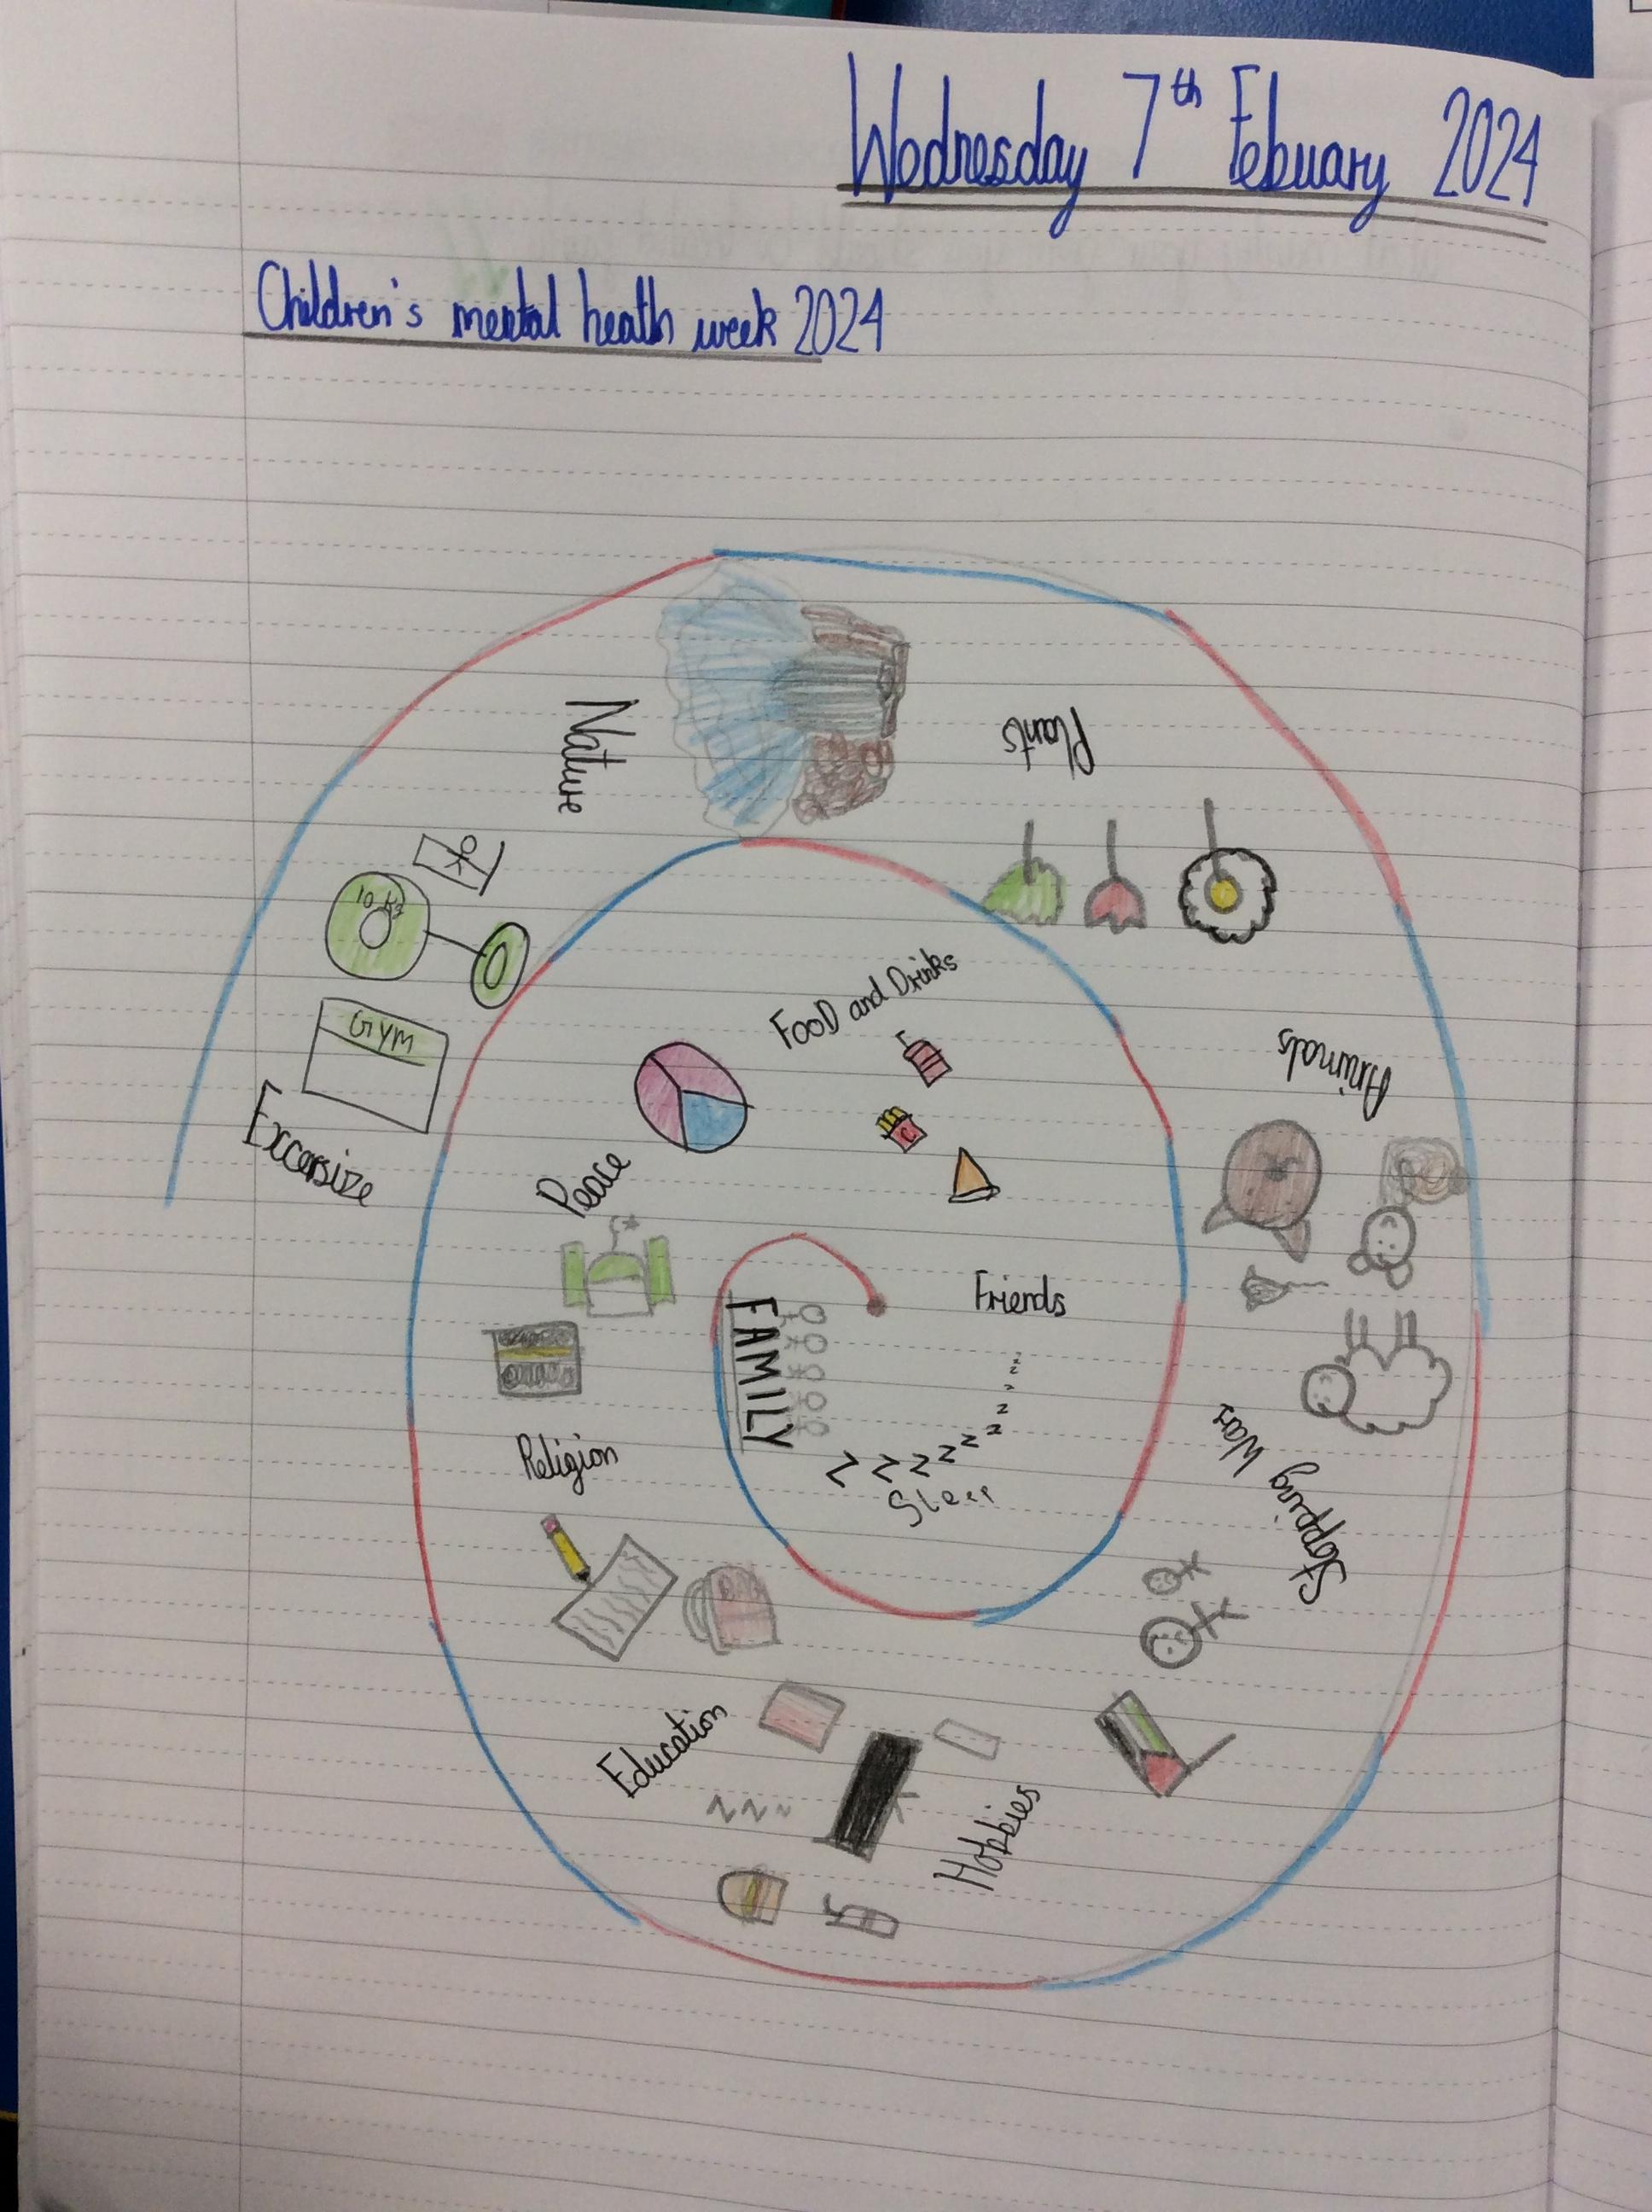 Wednesday 7th Febuary 2024
Children's mental heath week 2024
Nature
Plants
10 kg
GYM
Excersize
Food and Drinks
Animals
Peace
C
Friends
FAMILY
z z z z z z z z z z z
Sleep
Religion
Stopping Wars
Education
Hobbies